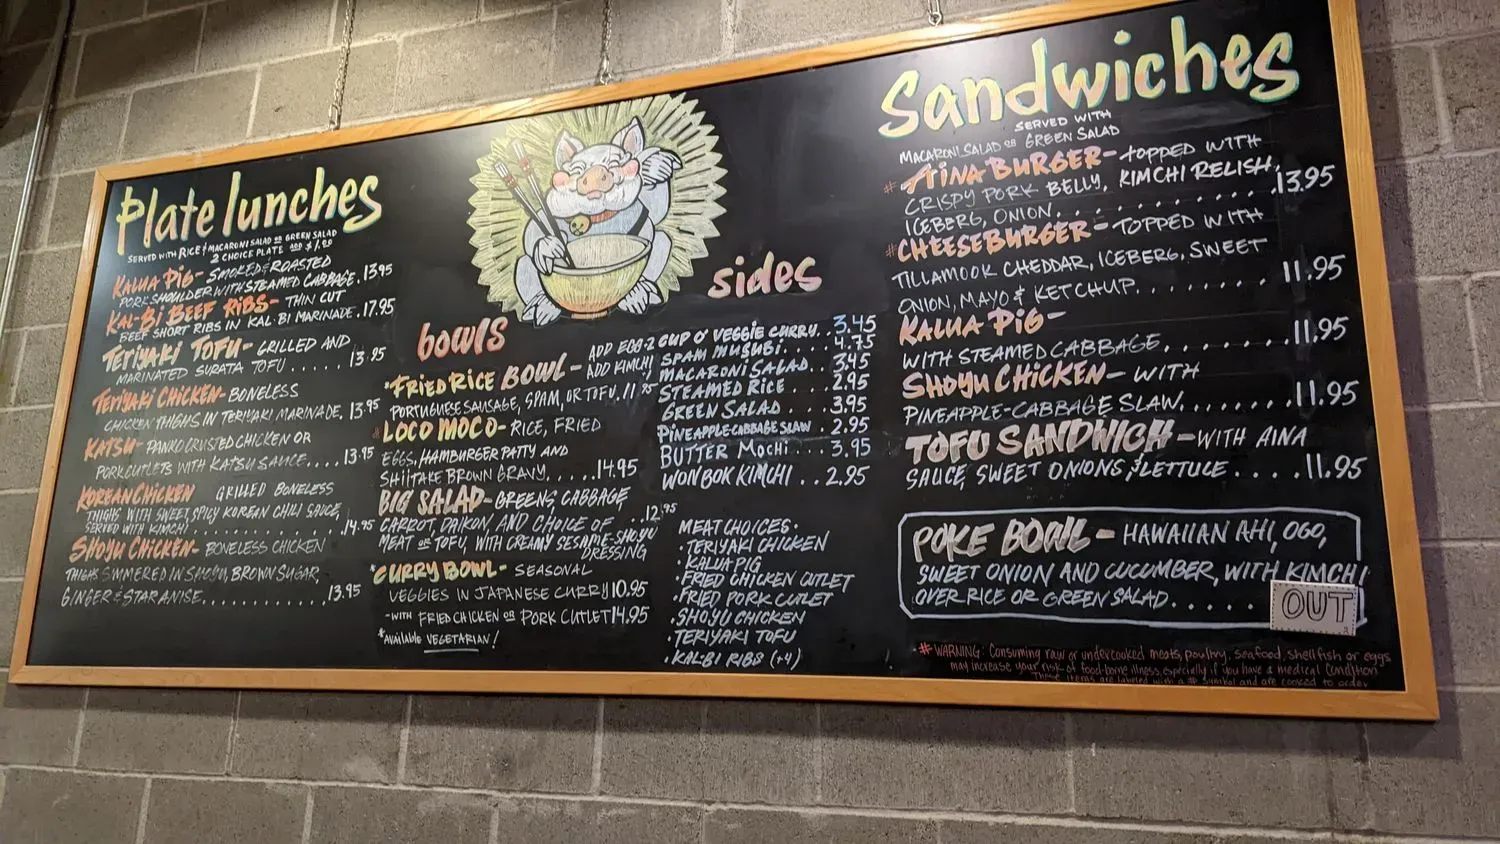 Plate lunches
SERVED WITH RICE & MACARONI SALAD OR GREEN SALAD
2 CHOICE PLATE ADD $1.20
KALUA PIG- SMOKED & ROASTED
PORK SHOULDER WITH STEAMED CABBAGE. 13.95
KAL-BI BEEF RIBS- THIN CUT
BEEF SHORT RIBS IN KAL-BI MARINADE. 17.95
TERIYAKI TOFU- GRILLED AND
MARINATED SURATA TOFU ..... 13.95
TERIYAKI CHICKEN- BONELESS
CHICKEN THIGHS IN TERIYAKI MARINADE. 13.95
KATSU- PANKO CRUSTED CHICKEN OR
PORK CUTLETS WITH KATSU SAUCE.... 13.95
KOREAN CHICKEN GRILLED BONELESS
THIGHS WITH SWEET, SPICY KOREAN CHILI SAUCE,
SERVED WITH KIMCHI ..... 14.95
SHOYU CHICKEN- BONELESS CHICKEN
THIGHS SIMMERED IN SHOYU, BROWN SUGAR,
GINGER & STAR ANISE............ 13.95
bowls
*FRIED RICE BOWL- ADD EGG-2
ADD KIMCHI
PORTUGUESE SAUSAGE, SPAM, OR TOFU. 11.95
#LOCO MOCO- RICE, FRIED
EGGS, HAMBURGER PATTY AND
SHIITAKE BROWN GRAVY. ..... 14.95
BIG SALAD- GREENS, CABBAGE,
CARROT, DAIKON, AND CHOICE OF ... 12.95
MEAT OR TOFU, WITH CREAMY SESAME-SHOYU
DRESSING
*CURRY BOWL- SEASONAL
VEGGIES IN JAPANESE CURRY 10.95
-WITH FRIED CHICKEN OR PORK CUTLET 14.95
*Available VEGETARIAN!
sides
CUP O' VEGGIE CURRY.. 3.45
SPAM MUSUBI.... 4.75
MACARONI SALAD.. 3.45
STEAMED RICE ... 2.95
GREEN SALAD ... 3.95
PINEAPPLE-CABBAGE SLAW . 2.95
BUTTER MOCHI.. 3.95
WON BOK KIMCHI .. 2.95
MEAT CHOICES·
·TERIYAKI CHICKEN
·KALUA PIG
·FRIED CHICKEN CUTLET
·FRIED PORK CUTLET
·SHOYU CHICKEN
·TERIYAKI TOFU
·KAL-BI RIBS (+4)
Sandwiches
SERVED WITH
MACARONI SALAD OR GREEN SALAD
#AINA BURGER- TOPPED WITH
CRISPY PORK BELLY, KIMCHI RELISH,
ICEBERG, ONION............. 13.95
#CHEESEBURGER- TOPPED WITH
TILLAMOOK CHEDDAR, ICEBERG, SWEET
ONION, MAYO & KETCHUP........ 11.95
KALUA PIG-
WITH STEAMED CABBAGE....... 11.95
SHOYU CHICKEN- WITH
PINEAPPLE-CABBAGE SLAW....... 11.95
TOFU SANDWICH- WITH AINA
SAUCE, SWEET ONIONS, & LETTUCE .... 11.95
POKE BOWL- HAWAIIAN AHI, OGO,
SWEET ONION AND CUCUMBER, WITH KIMCHI
OVER RICE OR GREEN SALAD.....
OUT
# WARNING: Consuming raw or undercooked meats, poultry, seafood, shellfish or eggs
may increase your risk of food-borne illness, especially if you have a medical condition
These items are labeled with a # symbol and are cooked to order